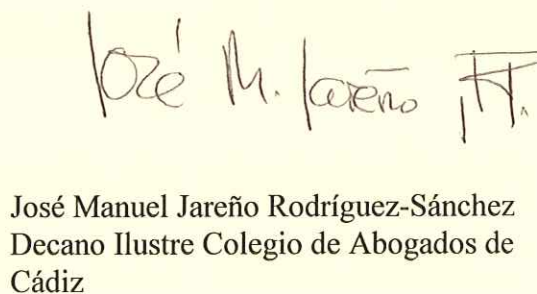 José M. Jareño
José Manuel Jareño Rodríguez-Sánchez
Decano Ilustre Colegio de Abogados de
Cádiz